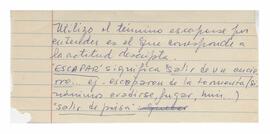 Utilizo el término escaparse por
entender es el que corresponde a
la actitud descripta.
ESCAPAR: significa "salir de un encie
rro, ej. escaparon de la tormenta/si-
nónimos evadirse, fugar, huir...)
"salir de prisa"